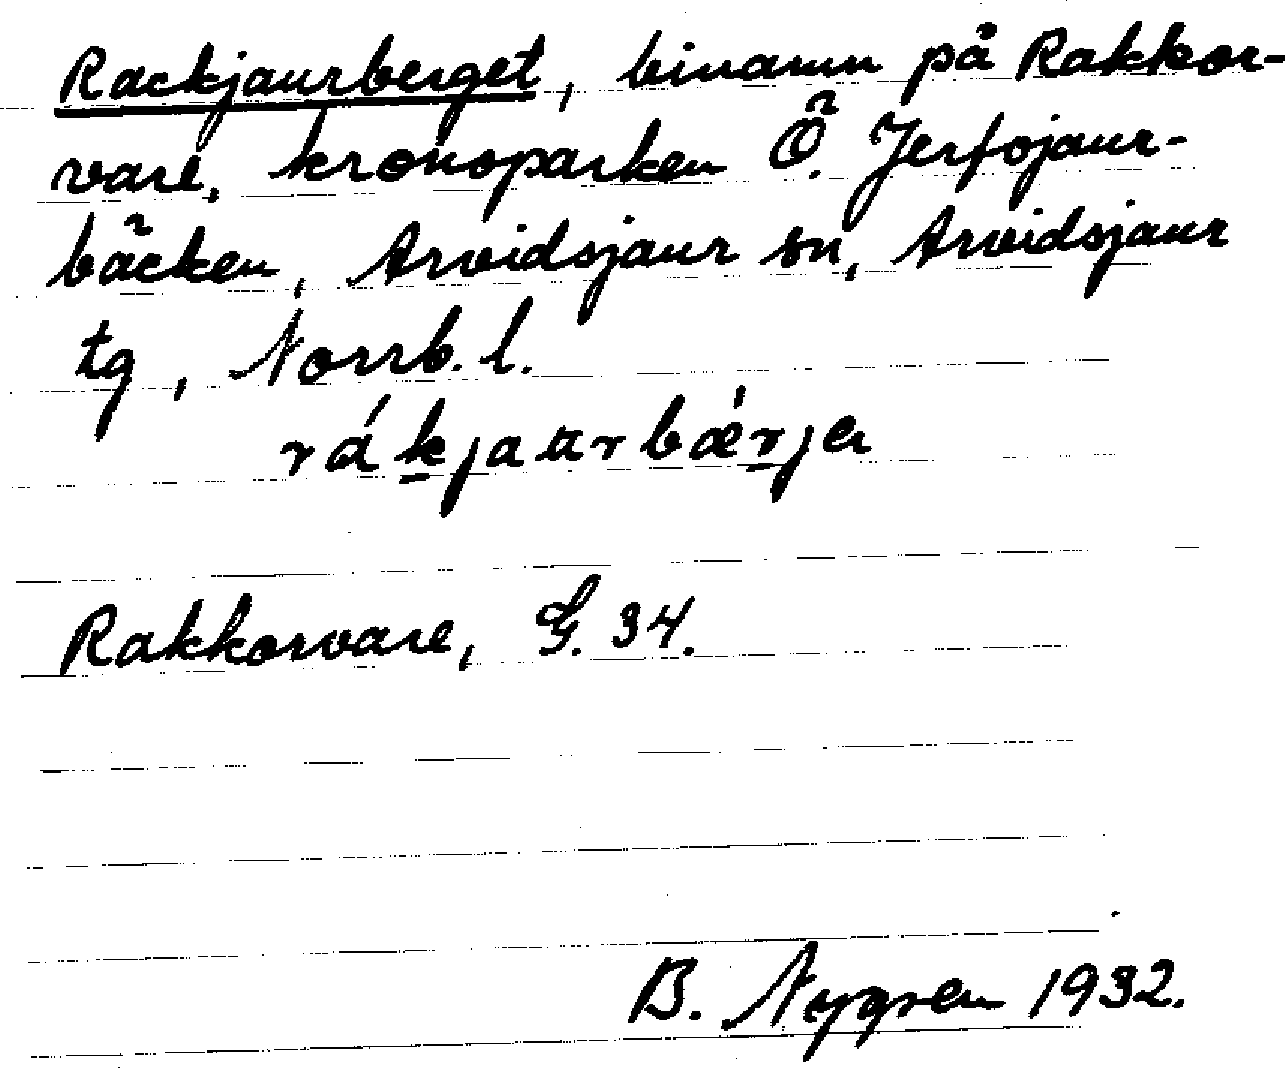 Rackjaurberget, binamn på Rakkor-
vare, kronoparken Ö. Jerfojaur-
bäcken, Arvidsjaur sn, Arvidsjaur
tg, Norrb. l.
rákjaurbǽrjer
Rakkorvare, G. 34.
B. Nygren 1932.